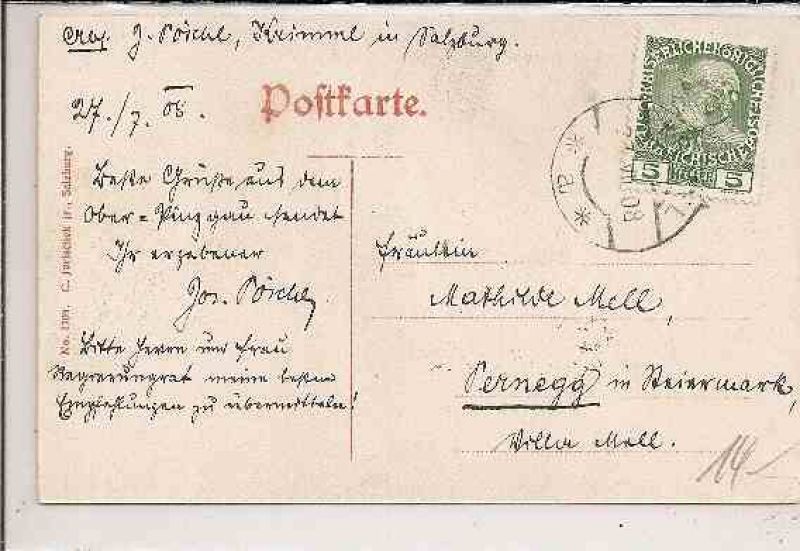 J. Pöschl, Krimml in Salzburg.
27./7. 08.
Postkarte.
Beste Grüße aus dem
Ober-Pinzgau sendet
Ihr ergebener
Jos. Pöschl
Bitte Herrn und Frau
Regierungsrat meine besten
Empfehlungen zu übermitteln!
No. 1101. C. Jurischek jr., Salzburg.
5 HELLER 5
08
Fräulein
Mathilde Mell,
Pernegg in Steiermark,
Villa Mell.
14